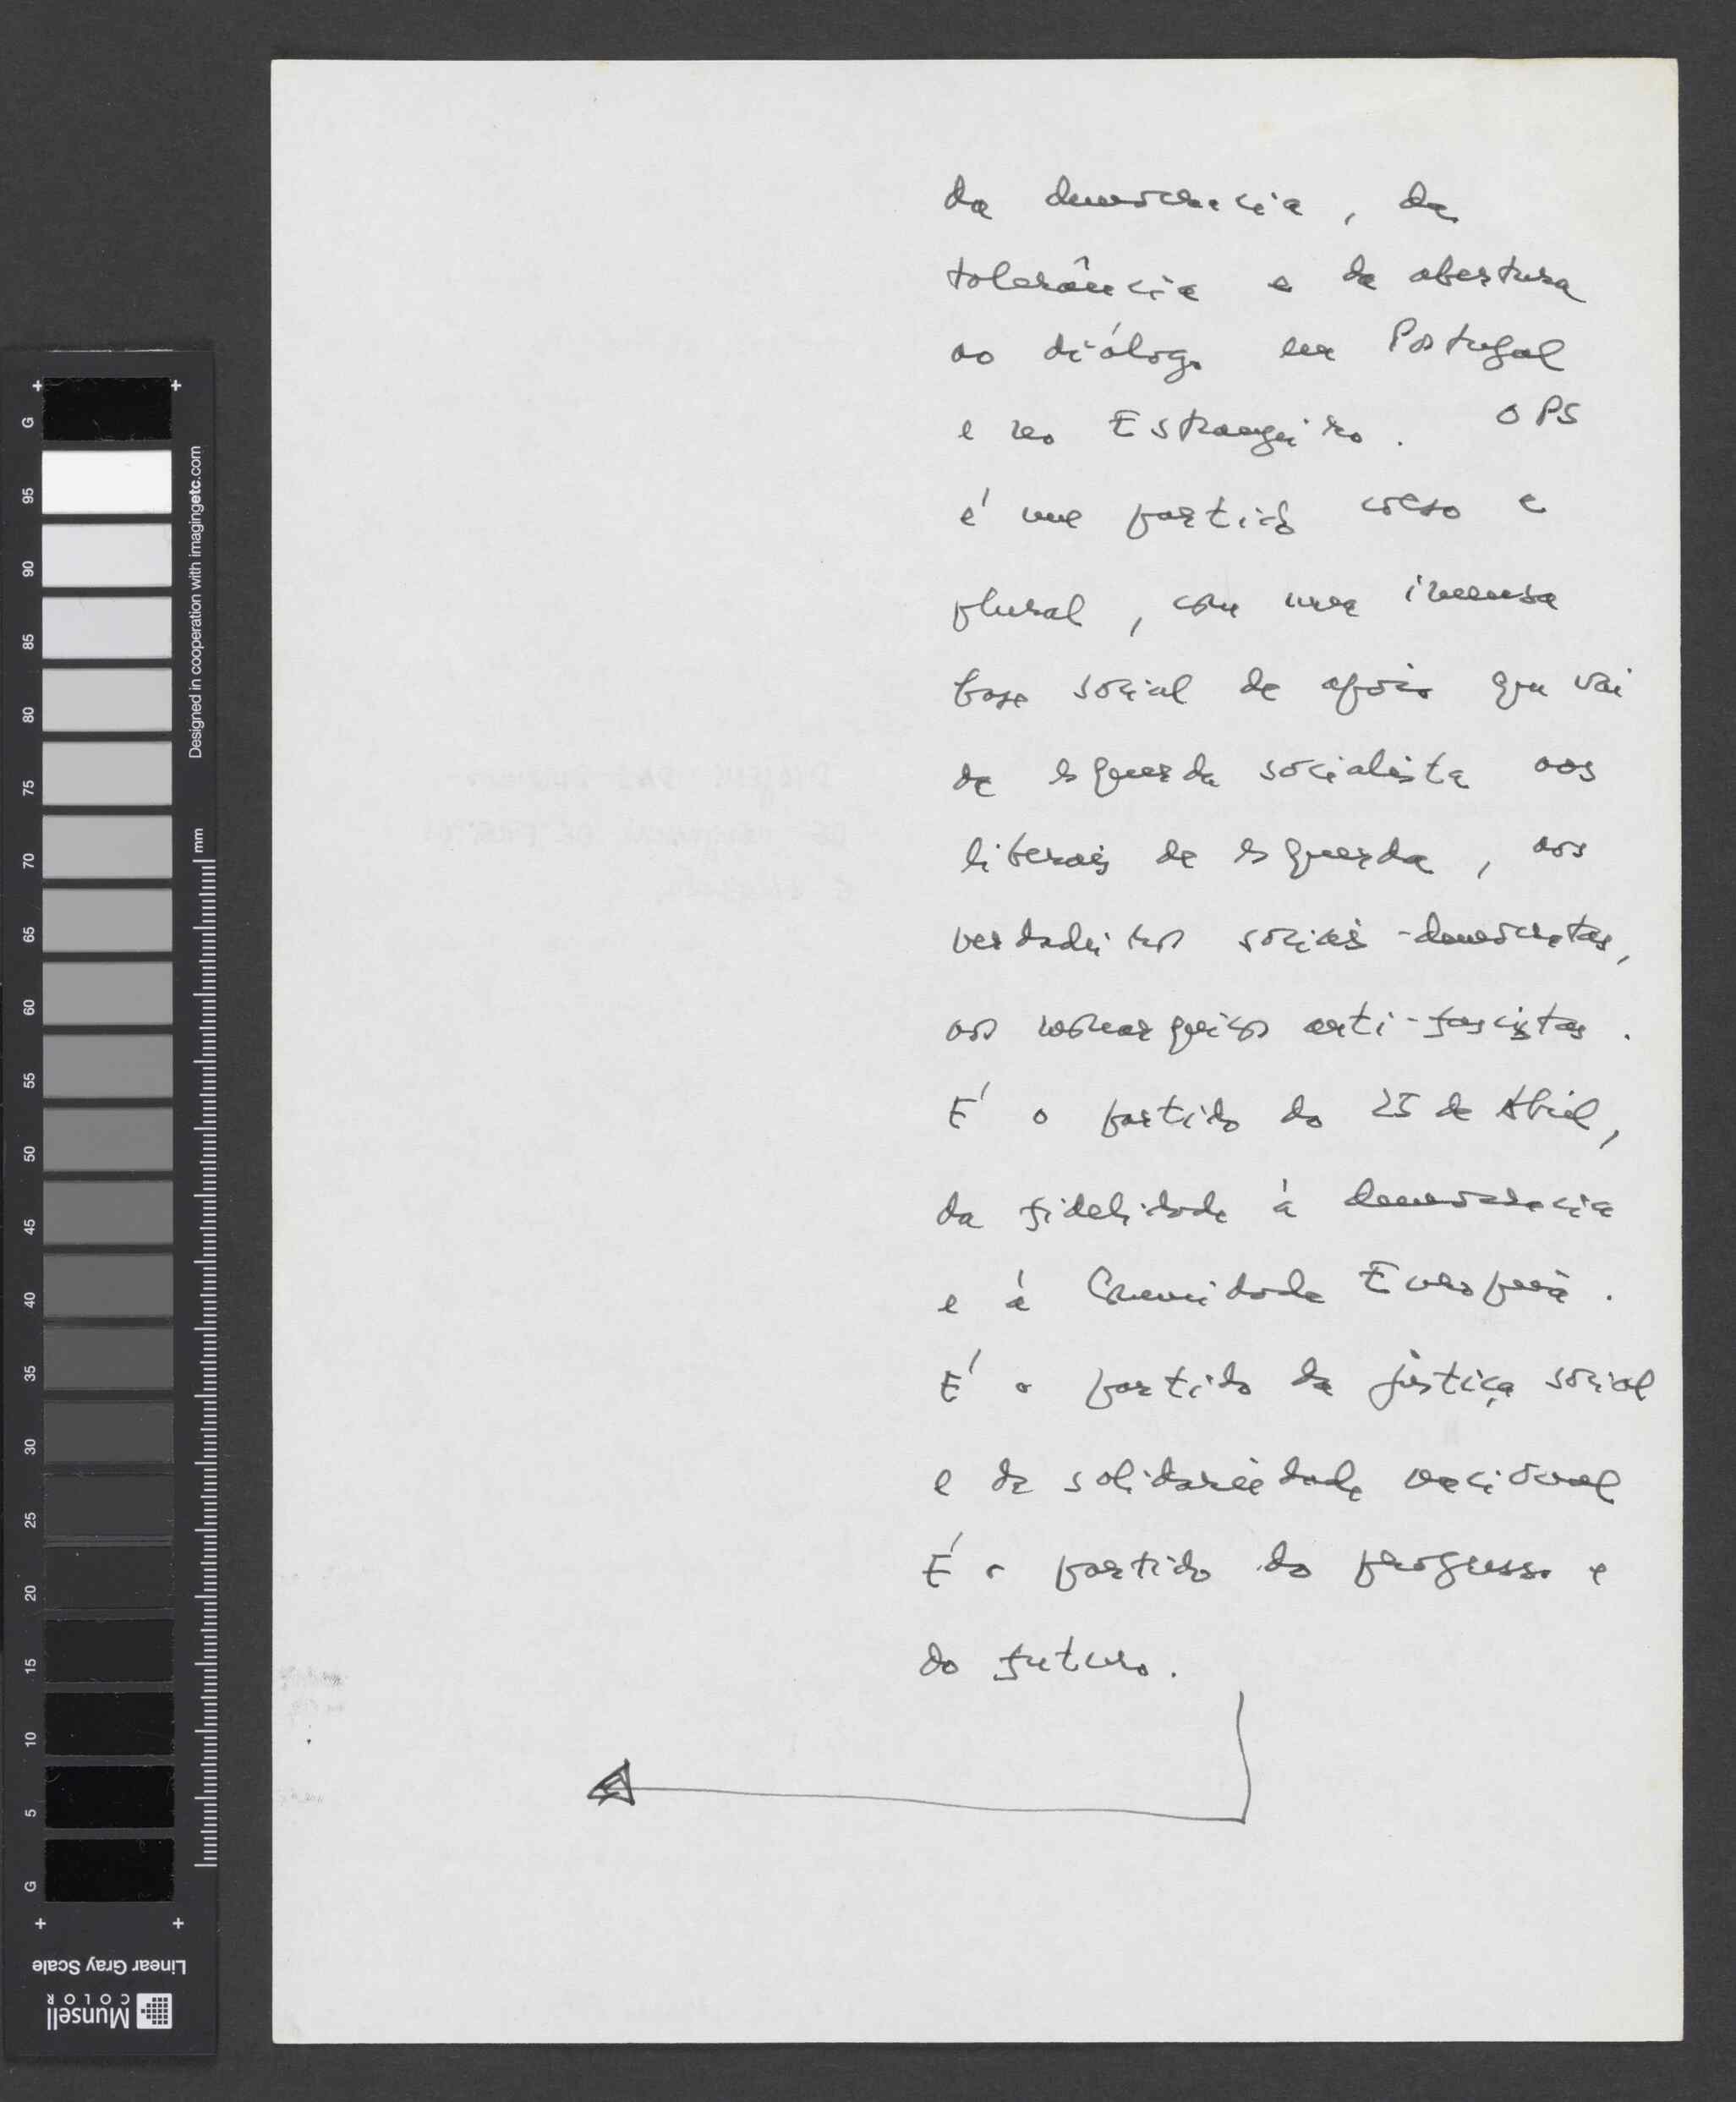 da democracia, da
tolerância e da abertura
ao diálogo em Portugal
e no Estrangeiro. O PS
é um partido coeso e
plural, com uma imensa
base social de apoio que vai
da esquerda socialista aos
liberais de esquerda, aos
verdadeiros sociais-democratas,
aos monarquicos anti-fascistas.
É o partido do 25 de Abril,
da fidelidade à democracia
e à Comunidade Europeia.
É o partido da justiça social
e da solidariedade nacional
É o partido do progresso e
do futuro.
G
95
90
85
80
75
70
65
60
55
50
45
40
35
30
25
20
15
10
5
G
Designed in cooperation with imagingetc.com
mm
Linear Gray Scale
Munsell
COLOR